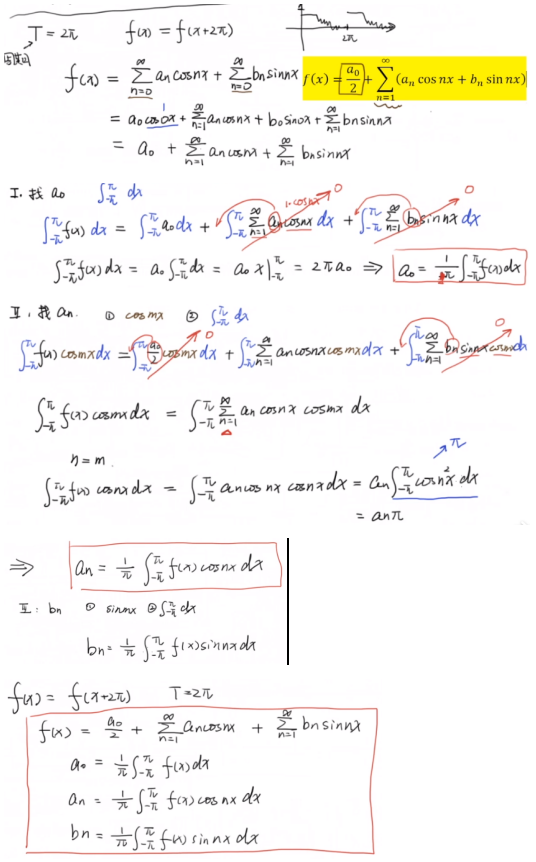 T = 2π f(x) = f(x+2π)
周期 2π
f(x) = ∑_{n=0}^{∞} an cosnx + ∑_{n=0}^{∞} bn sinnx f(x) = a₀/2 + ∑_{n=1}^{∞} (aₙ cos nx + bₙ sin nx)
= a₀ cos0x + ∑_{n=1}^{∞} an cosnx + b₀ sin0x + ∑_{n=1}^{∞} bn sinnx
1
= a₀ + ∑_{n=1}^{∞} an cosnx + ∑_{n=1}^{∞} bn sinnx
I. 找 a₀ ∫_{-π}^{π} dx
1·cosnx 0 0
∫_{-π}^{π} f(x) dx = ∫_{-π}^{π} a₀ dx + ∫_{-π}^{π} ∑_{n=1}^{∞} an cosnx dx + ∫_{-π}^{π} ∑_{n=1}^{∞} bn sinnx dx
∫_{-π}^{π} f(x) dx = a₀ ∫_{-π}^{π} dx = a₀ x |_{-π}^{π} = 2π a₀ ⇒ a₀ = 1/π ∫_{-π}^{π} f(x) dx
II. 找 an. ① cosmx ② ∫_{-π}^{π} dx
0 0
∫_{-π}^{π} f(x) cosmx dx = ∫_{-π}^{π} a₀/2 cosmx dx + ∫_{-π}^{π} ∑_{n=1}^{∞} an cosnx cosmx dx + ∫_{-π}^{π} ∑_{n=1}^{∞} bn sinnx cosmx dx
∫_{-π}^{π} f(x) cosmx dx = ∫_{-π}^{π} ∑_{n=1}^{∞} an cosnx cosmx dx
n = m.
π
∫_{-π}^{π} f(x) cosnx dx = ∫_{-π}^{π} an cosnx cosnx dx = an ∫_{-π}^{π} cos²nx dx
= an π
⇒ an = 1/π ∫_{-π}^{π} f(x) cosnx dx
III: bn ① sinmx ② ∫_{-π}^{π} dx
bn = 1/π ∫_{-π}^{π} f(x) sinnx dx
f(x) = f(x+2π) T=2π
f(x) = a₀/2 + ∑_{n=1}^{∞} an cosnx + ∑_{n=1}^{∞} bn sinnx
a₀ = 1/π ∫_{-π}^{π} f(x) dx
an = 1/π ∫_{-π}^{π} f(x) cos nx dx
bn = 1/π ∫_{-π}^{π} f(x) sin nx dx